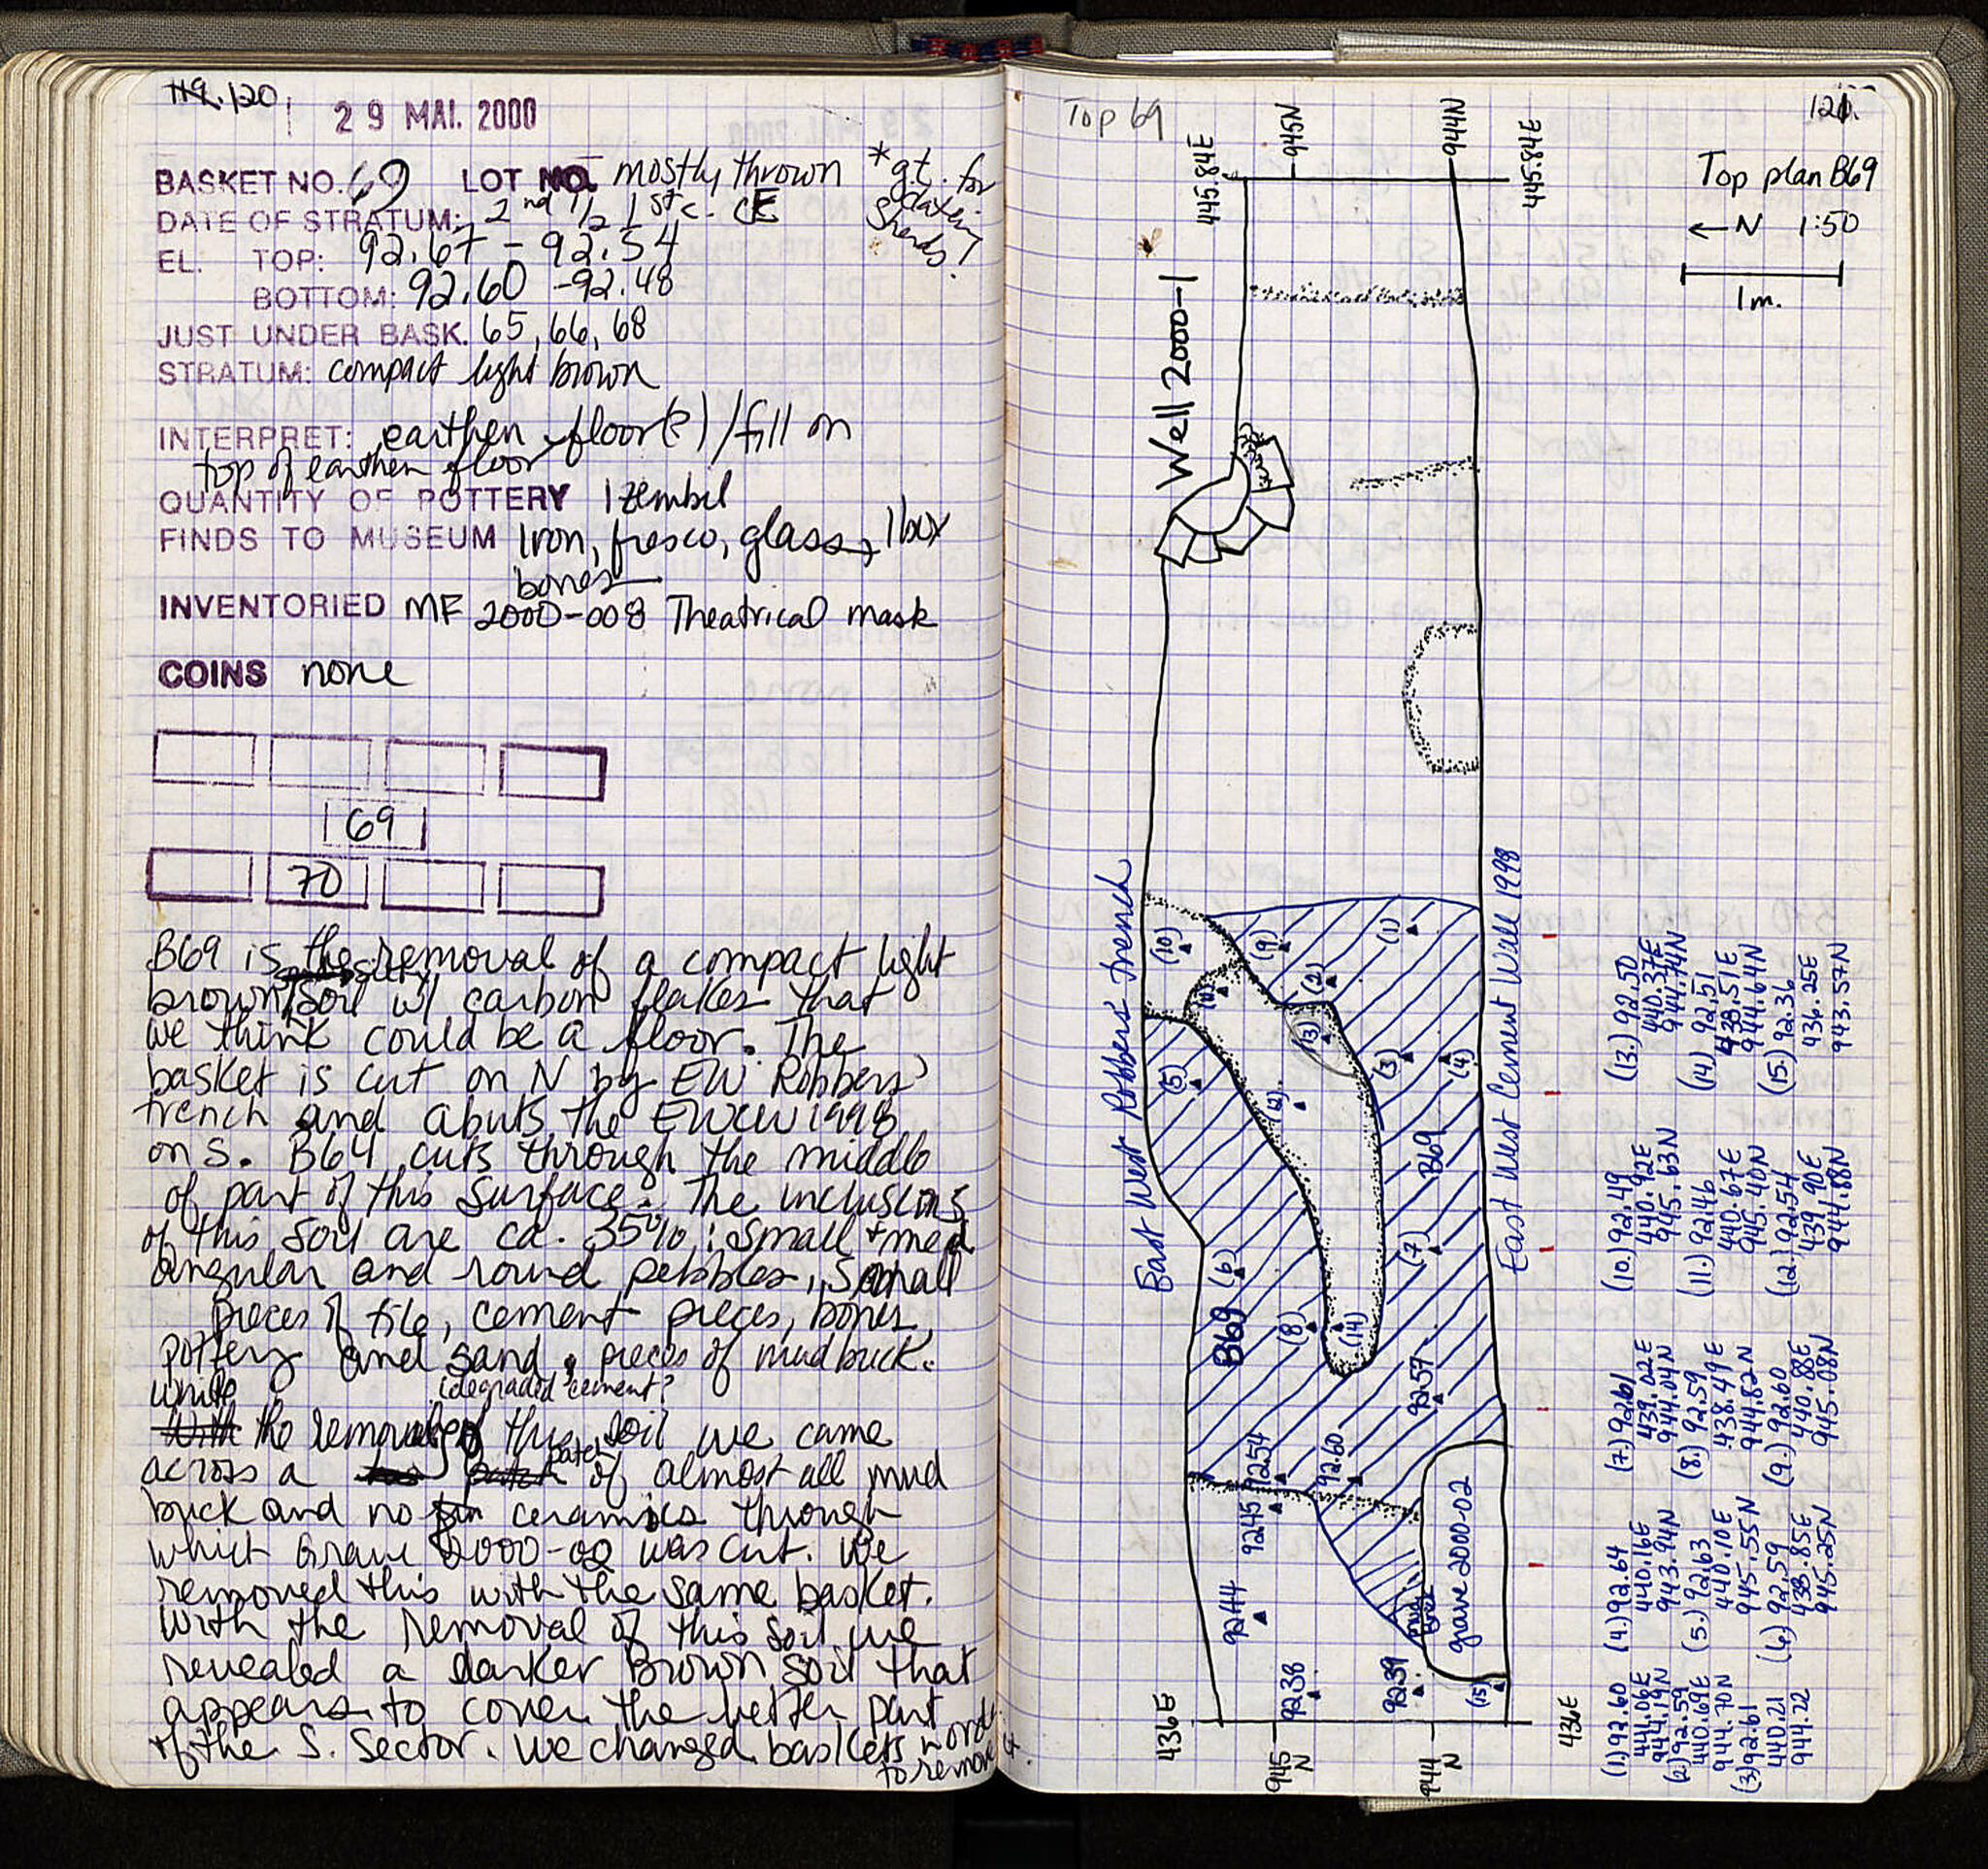 119. 120
29 MAI. 2000
BASKET NO. 69 LOT NO. mostly thrown
*gt. for
dating
sherds!
DATE OF STRATUM: 2nd 1/2 1st c. CE
EL. TOP: 92.67 - 92.54
BOTTOM: 92.60 - 92.48
JUST UNDER BASK. 65, 66, 68
STRATUM: compact light brown
INTERPRET: earthen floor(?)/fill on
top of earthen floor
QUANTITY OF POTTERY 1 zembil
FINDS TO MUSEUM Iron, fresco, glass, 1 box
bones
INVENTORIED MF 2000-008 Theatrical mask
COINS none
69
70
B69 is the removal of a compact light
brown soil w/ carbon flakes that
we think could be a floor. The
basket is cut on N by EW Robbers'
trench and abuts the EWCW1998
on S. B64 cuts through the middle
of part of this surface. The inclusions
of this soil are ca. 35%: small + med
angular and round pebbles, small
pieces of tile, cement pieces, bones,
pottery and sand, pieces of mudbrick.
white (degraded cement?
With the removal of this soil we came
across a patch of almost all mud
brick and no ceramics through
which Grave 2000-02 was cut. We
removed this with the same basket.
With the removal of this soil we
revealed a darker Brown soil that
appears to cover the better part
of the S. Sector. We changed baskets in order
to remove it.
Top 69
121.
Top plan B69
← N 1:50
1m.
445.84E
945N
944N
445.84E
Well 2000-1
East West Robbers' Trench
East West Cement Wall 1998
(10)
(9)
(1)
(2)
(11)
(13)
(5)
(12)
(3)
(4)
B69
(6)
(7)
B69
(8)
(14)
92.57
92.54
92.60
92.45
92.44
grave 2000-02
92.38
92.39
(15)
436E
945
N
944
N
436E
(1) 92.60
441.06E
944.19N
(2) 92.59
440.69E
944.70N
(3) 92.61
440.21
944.22
(4.) 92.64
440.16E
943.94N
(5.) 92.63
440.10E
945.55N
(6) 92.59
438.85E
945.25N
(7) 92.61
439.02E
944.04N
(8.) 92.59
438.49E
944.82N
(9.) 92.60
440.88E
945.08N
(10.) 92.49
440.92E
945.63N
(11.) 92.46
440.67E
945.40N
(12.) 92.54
439.90E
944.88N
(13.) 92.50
440.37E
944.74N
(14) 92.51
438.51E
944.64N
(15.) 92.36
436.25E
943.57N